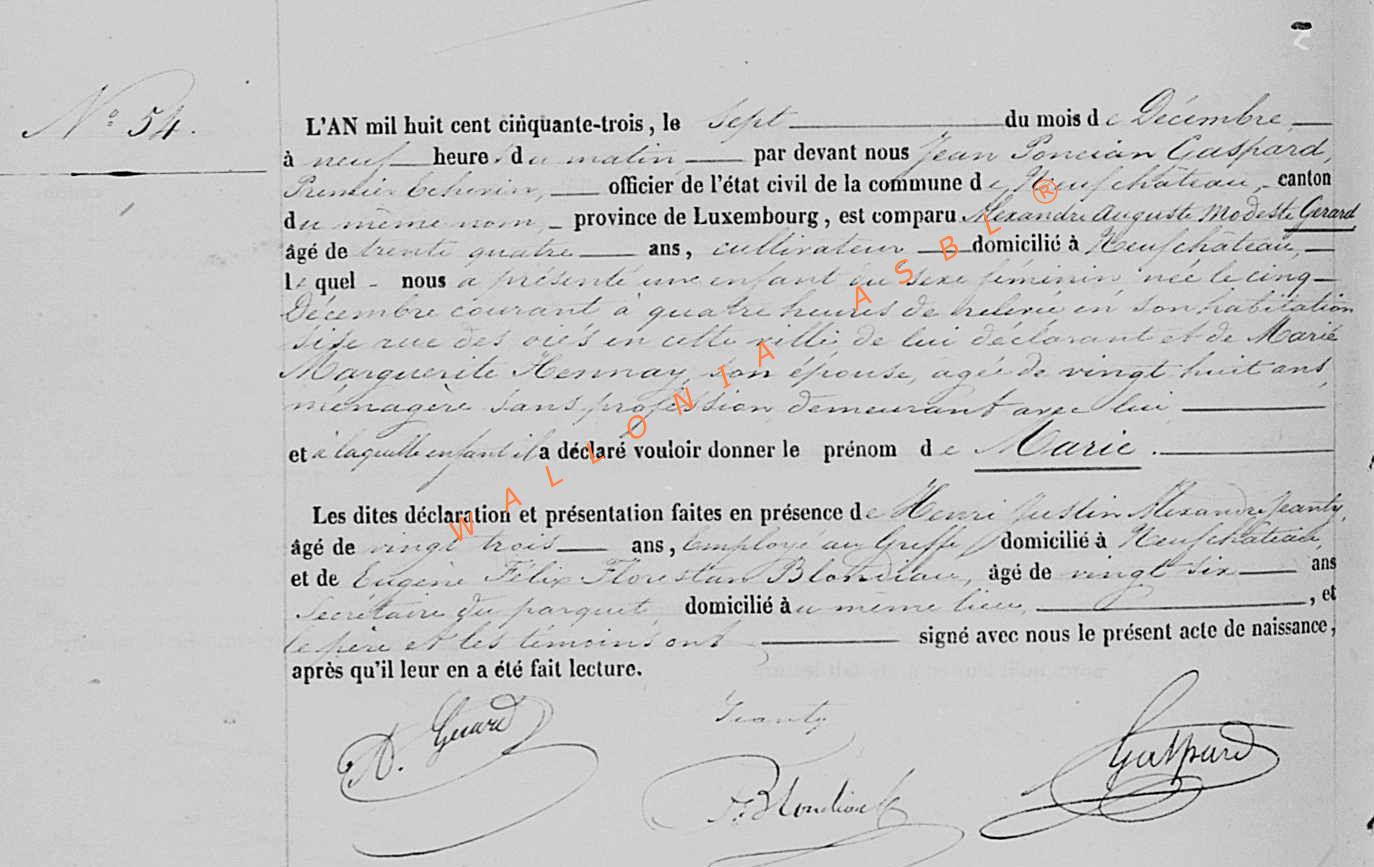 N° 54.
L'AN mil huit cent cinquante-trois, le sept du mois de Décembre,
à neuf heures du matin par devant nous Jean Poncian Gaspard,
Premier Echevin, officier de l'état civil de la commune de Neufchâteau, canton
du même nom, province de Luxembourg, est comparu Alexandre Auguste Modeste Gerard
âgé de trente quatre ans, cultivateur domicilié à Neufchâteau,
lequel nous a présenté une enfant du sexe féminin, née le cinq
Décembre courant à quatre heures de relevée en son habitation
sise rue des oies en cette ville de lui déclarant et de Marie
Marguerite Hennay, son épouse, agée de vingt huit ans,
ménagère sans profession demeurant avec lui
et à laquelle enfant il a déclaré vouloir donner le prénom de Marie.
Les dites déclaration et présentation faites en présence de Henri Justin Alexandre Jeanty,
âgé de vingt trois ans, Employé au Greffe domicilié à Neufchateau,
et de Eugène Félix Florestan Blondiau, âgé de vingt six ans
Secrétaire du parquet domicilié au même lieu, et
le père et les témoins ont signé avec nous le présent acte de naissance,
après qu'il leur en a été fait lecture.
A. Gerard
Jeanty
Gaspard
WALLONIA ASBL ®